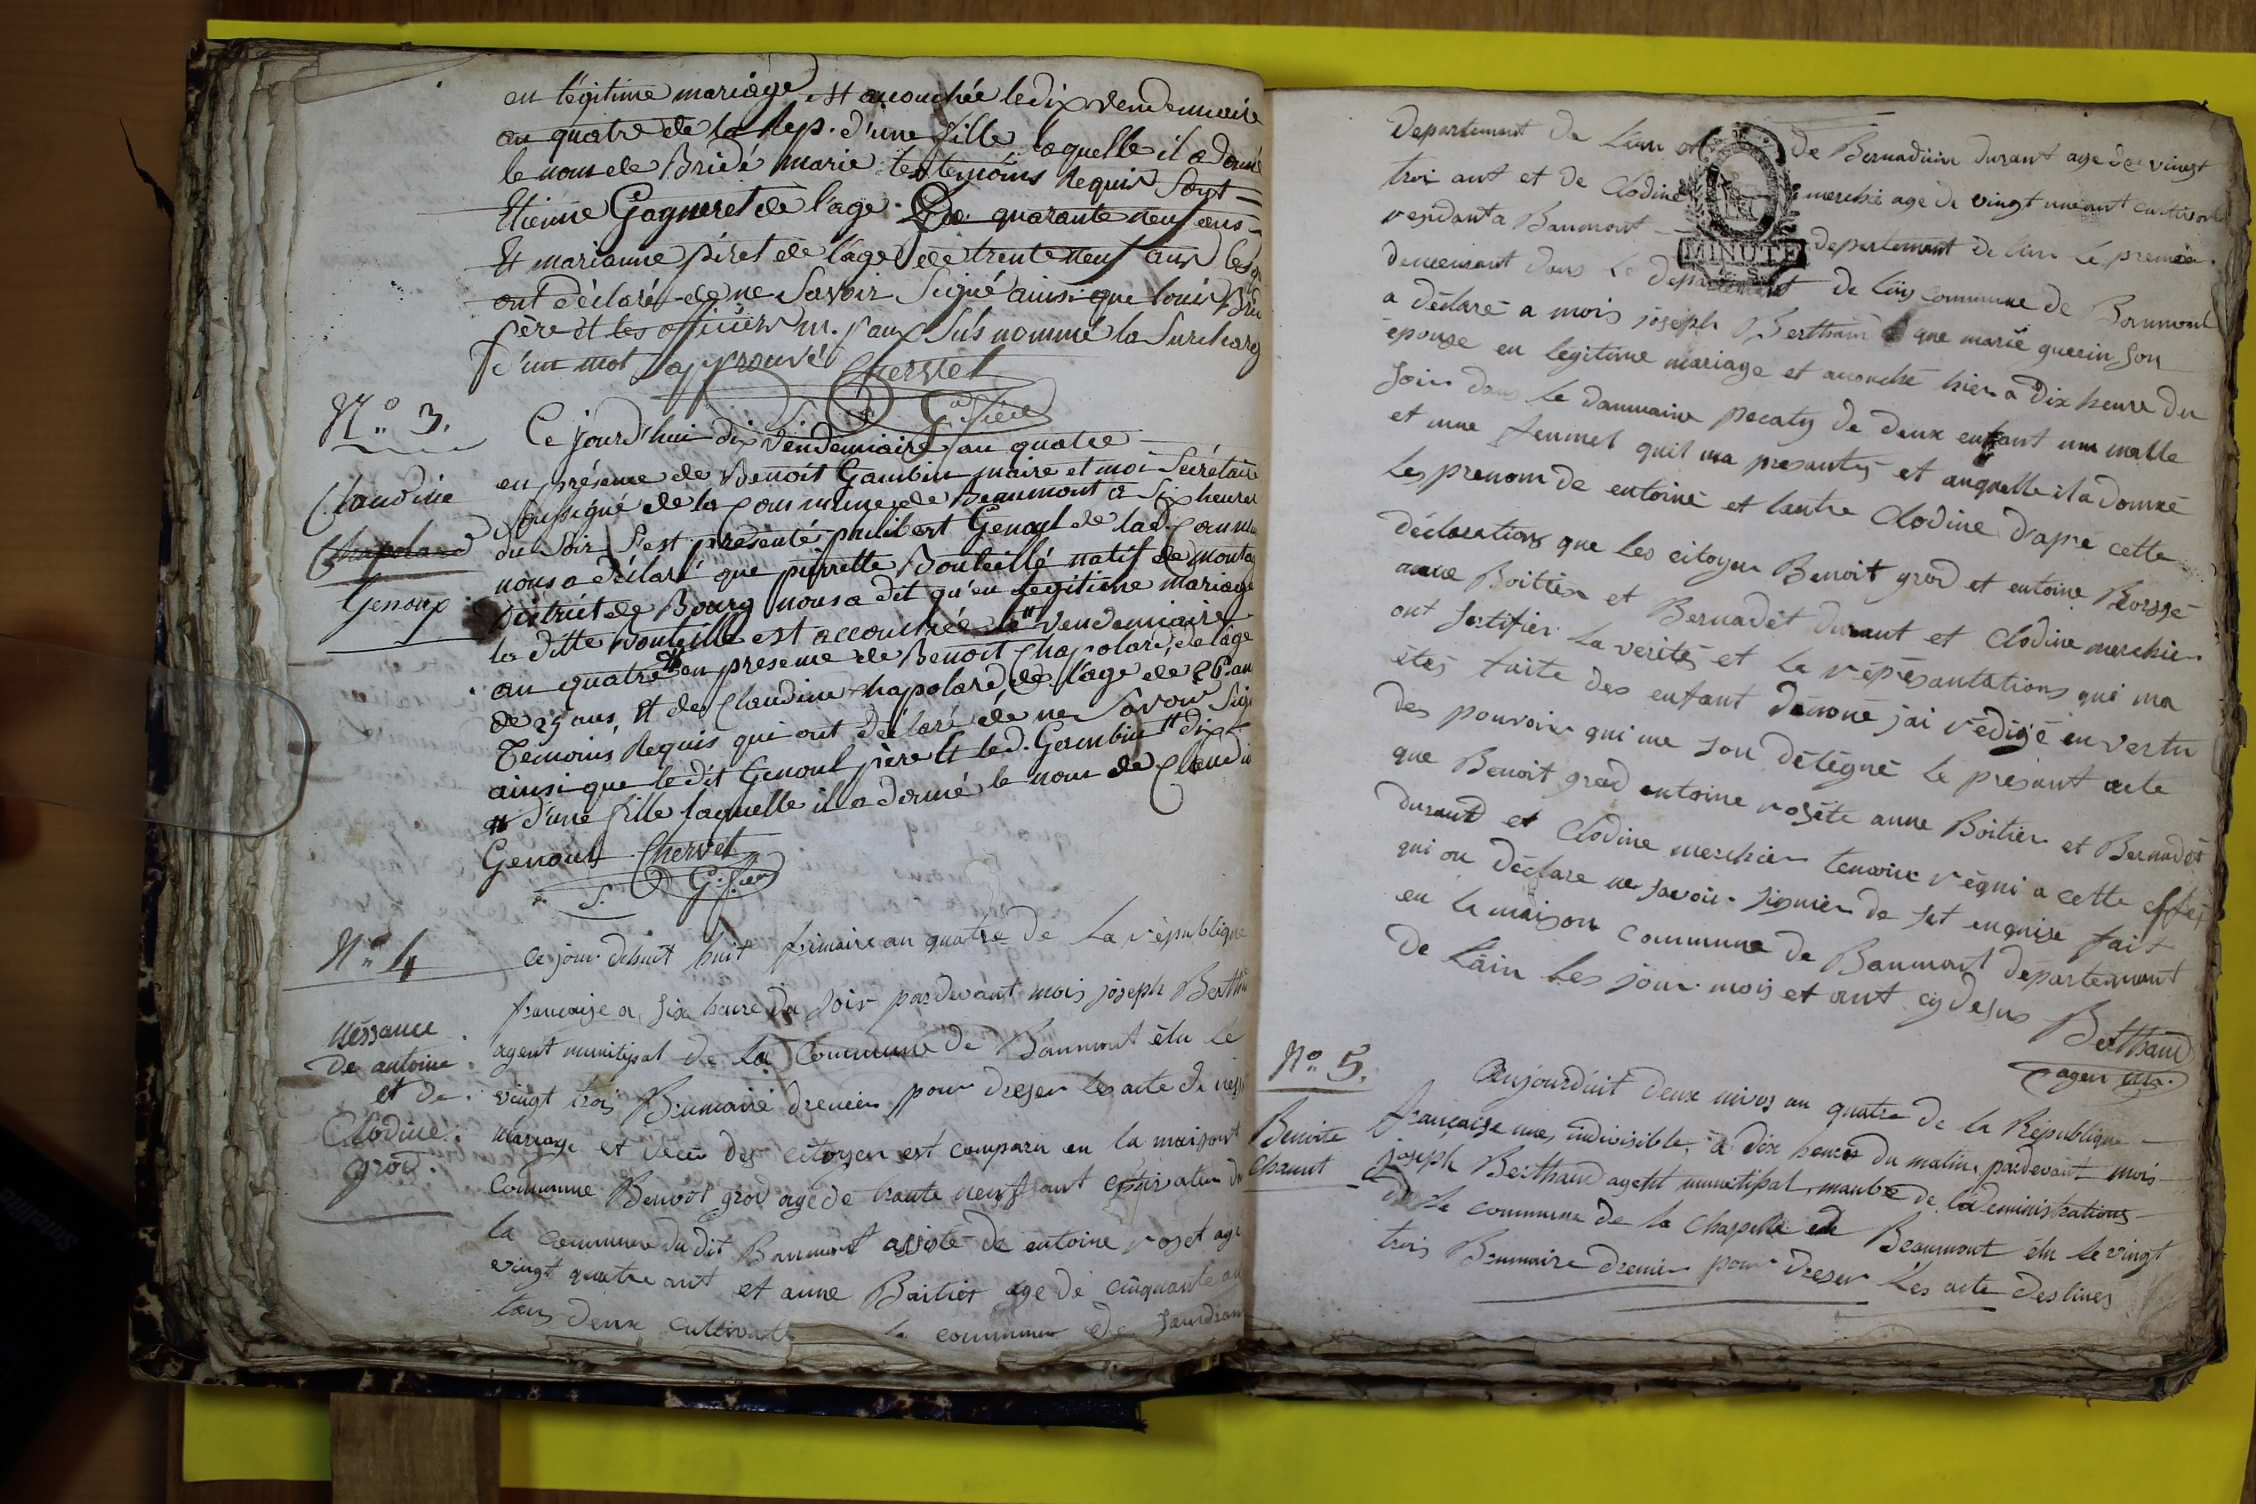 en légitime mariage est acouchée le dix vendemiaire
an quatre de la Rep. d'une fille laquelle il a donné
le nom de Bridé marie les temoins Requis sont
Etienne Gagneret de l'age De quarante neuf ans
Et marianne piret de l'age de trente neuf ans
ont déclaré de ne Savoir Signé ainsi que louis
père et les officiers m. paux Sus nommé la Surcharg
d'un mot approuvé Chervet
S. G.fier
N.o 3.
Claudine
Chapolard
Genoux
Ce jourd'hui dix Vendemiaire an quatre
en présence de Benoit Gambin maire et moi Secrétaire
Soussigné de la Commune de Beaumont a Six heures
du Soir S'est présenté philibert Genoul de lad. Commu
nous a déclaré que pierrette Bouteille natif de monta
district de Bourg nous a dit qu'en legitime mariage
la ditte Bouteille est accouchée le # Vendemiaire
an quatre # en presence de Benoit Chapolard, de l'age
de 25 ans, Et de Claudine Chapolard de l'age de 26 an
Temoins Requis qui ont déclaré de ne Savoir Sig
ainsi que le dit Genoul père Et led. Gambin # dix
# d'une fille laquelle il a donné le nom de Claudi
Genoul Chervet
S. G.fier
N.o 4
néssance
de antoine
et de
Clodine
grod.
Ce jour dehuit huit frimaire an quatre de La république
française a Six heure du Soir pardevant mois joseph Berth
agent munitipal de la Commune de Baumont élu le
vingt trois Brumaire drenier pour dreser les acte de ness
mariage et décé des citoyen est comparu en la maison
Commune Benoot grod agé de trante neuf ant
la Commune du dit Baumont asisté de entoine roset agé
vingt quatre ant et anne Baitier age de cinquante an
tous deux cultivat la commune de
departement de Lain et de Bernadine durant age de vingt
trois ant et de Clodine merchie age de vingt une ant
resident a Baumont departement de lain le premier
demeurant dans le departement de Lain Commune de Bommont
MINUTE
a déclaré a mois joseph Berthaud que marie guerin son
épouse en legitime mariage et acouché hier a dix heure du
soir dans le dommaine pecaty de deux enfant un malle
et une femmel quil ma presanté et auquelle il a donné
Les prenom de entoine et lautre Clodine d'apré cette
déclarations que les citoyen Benoit grod et entoine
anne Boitier et Bernadét durant et Clodine merchier
ont sertifier La verités et la réprésantations qui ma
étés faite des enfant dénoné jai rédigé en vertu
des pouvoir qui me son délégué le présant acte
que Benoit grod entoine roséte anne Boitier et Bernadét
durand et Clodine merchier temoins réqui a cette effét
qui on déclare ne savoir signier de set enquise fait
en la maison Commune de Baumont département
de Lain Les jour mois et ant cy desus Berthaud
agen mu.
N.o 5.
Benoite
Charnut
Aujourduit deux nivos an quatre de la République
française une, indivisible, a dix heures du matin, pardevant mois
joseph Berthaud agent munitipal, manbre de ladeministrations
de la commune de la Chappelle de Beaumont élu le vingt
trois Brumaire drenier pour dreser Les acte deslines